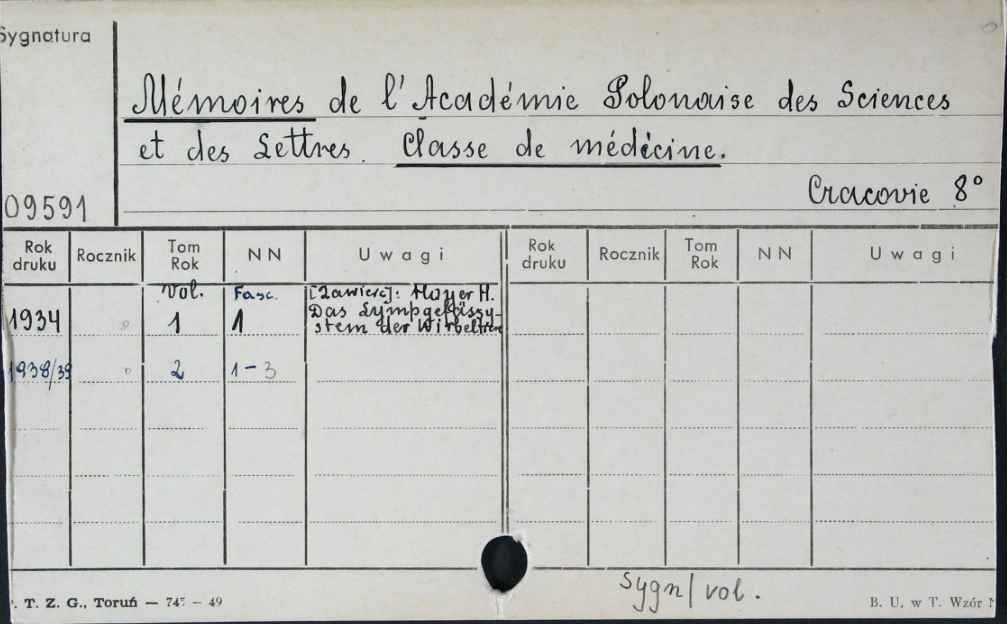 Sygnatura
Mémoires de l'Académie Polonaise des Sciences
et des Lettres. Classe de médecine.
Cracovie 8°
09591
Rok druku Rocznik Tom Rok NN Uwagi Rok druku Rocznik Tom Rok NN Uwagi
vol. Fasc. [Zawiera]: Hoyer H.
1934 1 1 Das Lympgefässsy-
stem der Wirbeltiere
1938/39 2 1-3
Sygn/vol.
T. Z. G., Toruń — 49
B. U. w T. Wzór